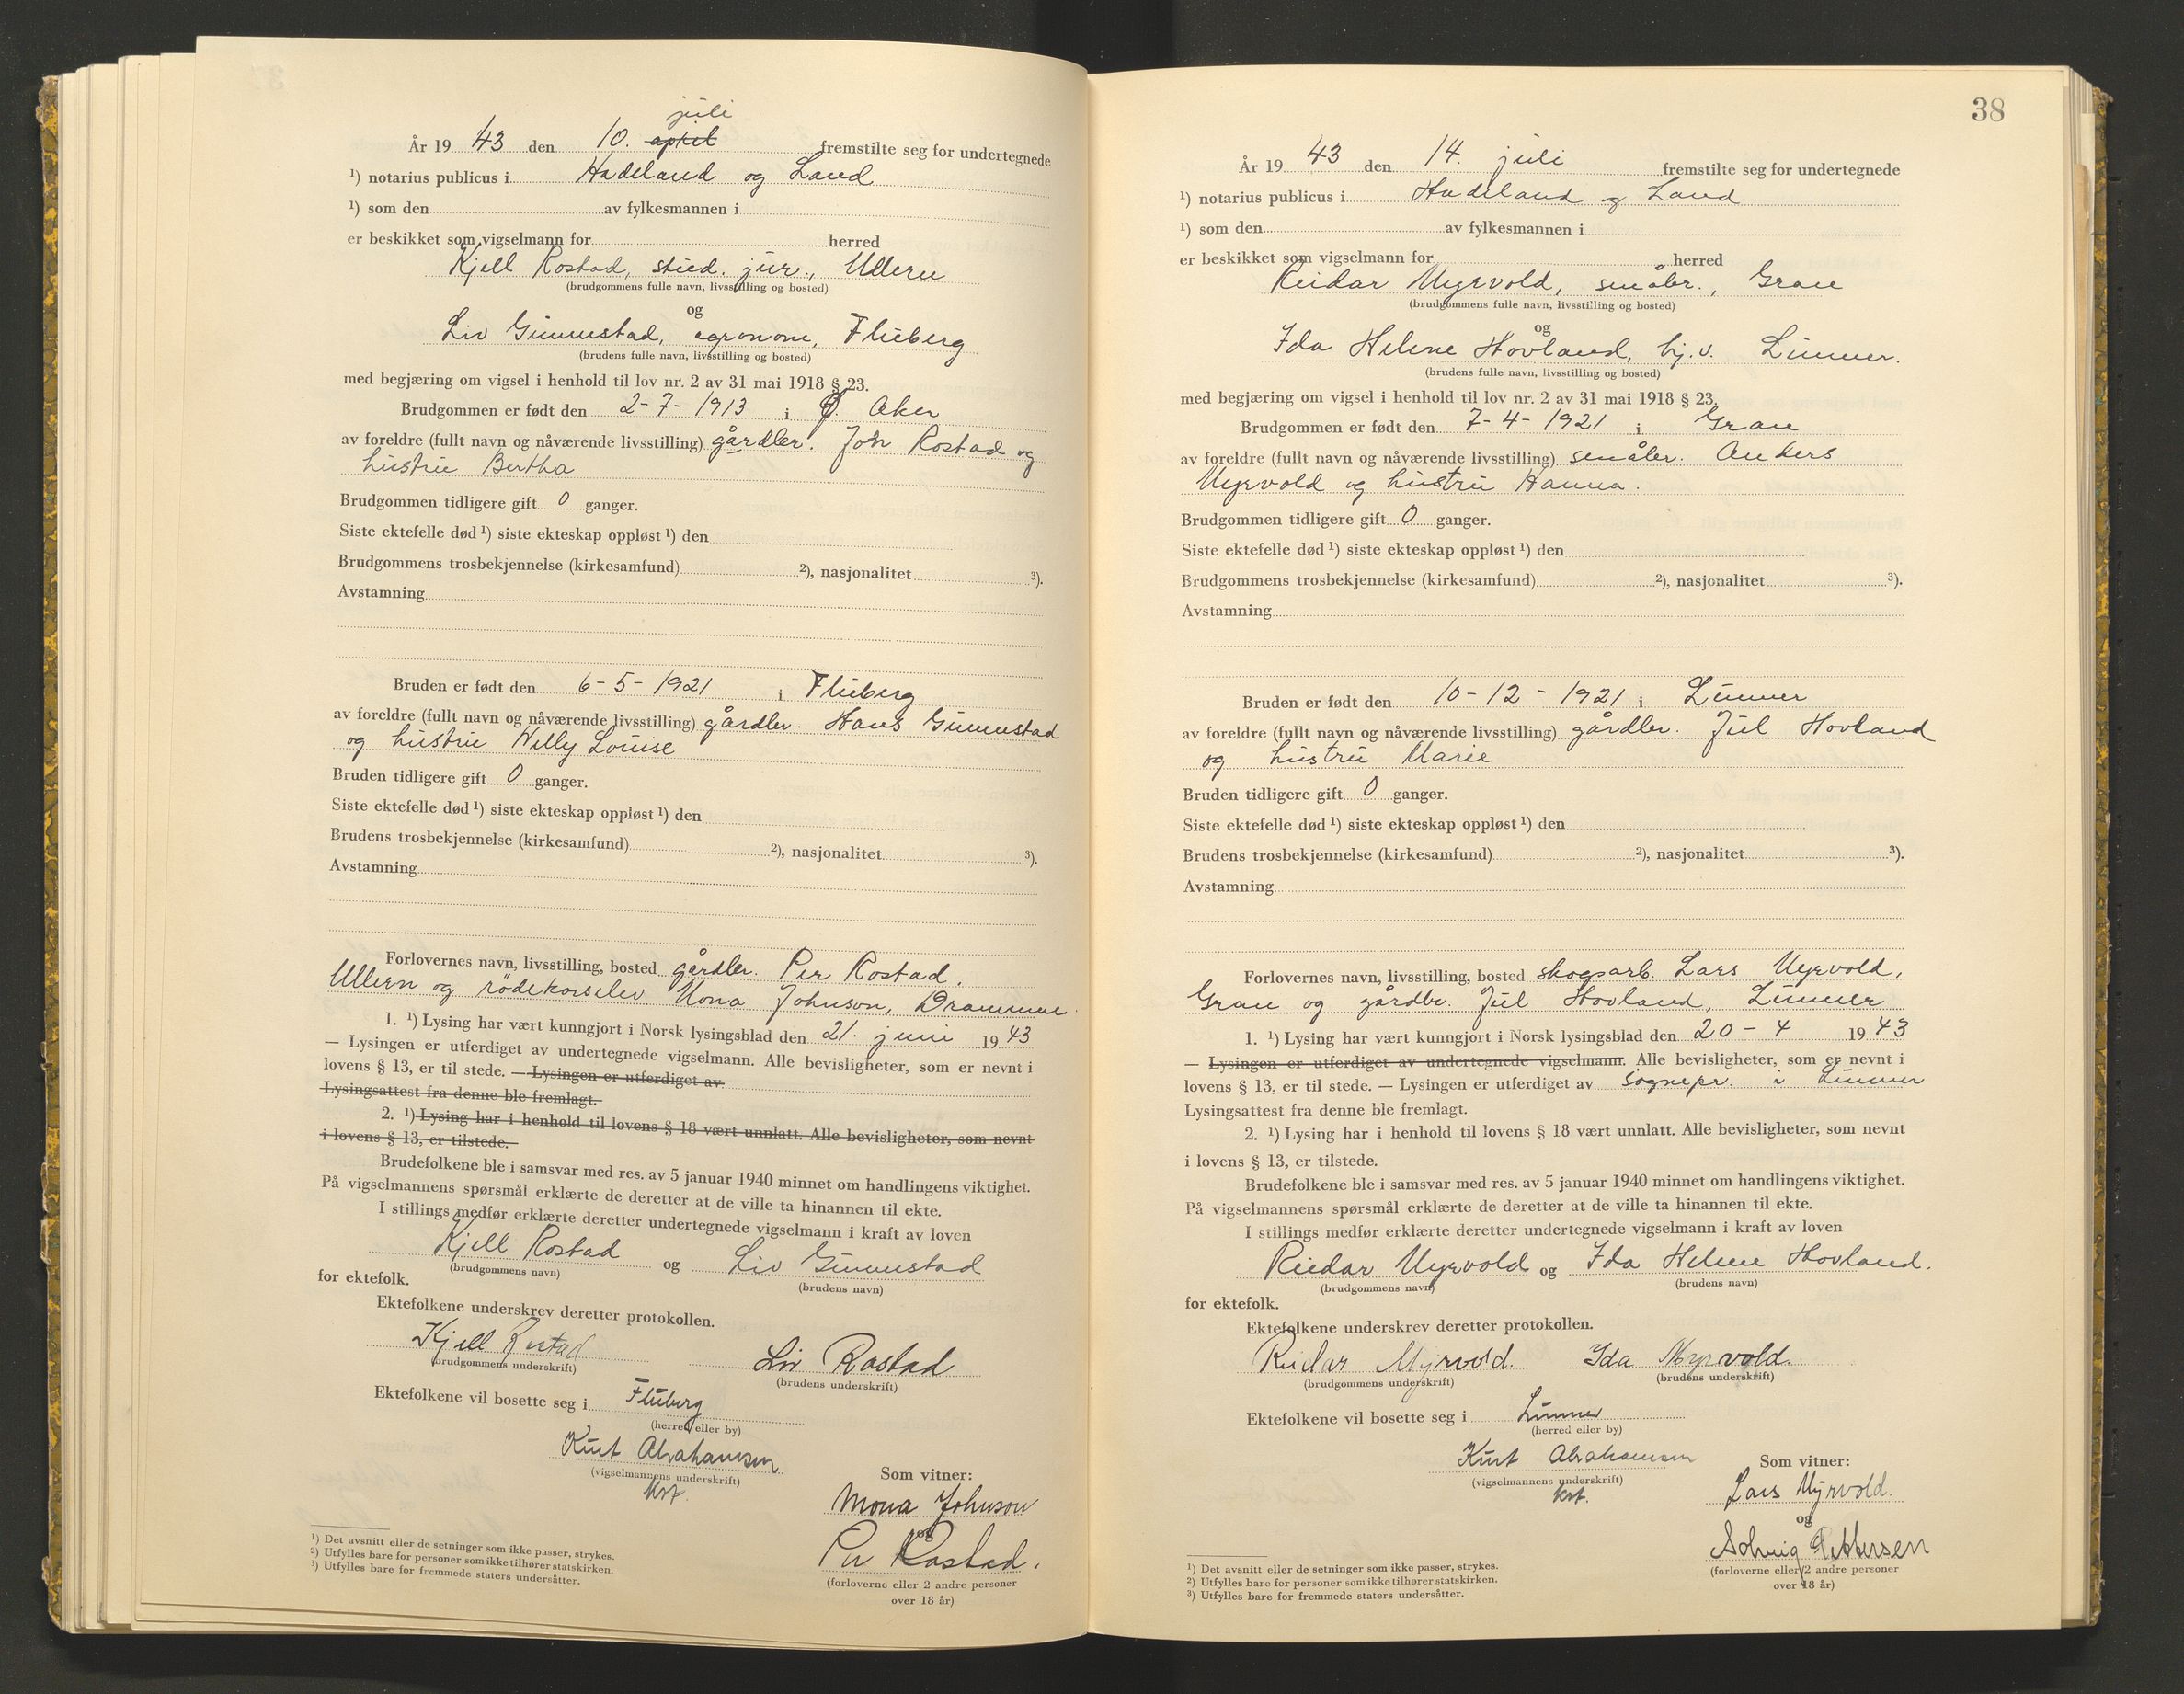 juli
År 19 43 den 10. april fremstilte seg for undertegnede
¹) notarius publicus i Hadeland og Land
¹) som den av fylkesmannen i
er beskikket som vigselmann for herred
Kjell Rostad, stud. jur., Ullern
(brudgommens fulle navn, livsstilling og bosted)
og
Liv Gunnestad, agronom, Fluberg
(brudens fulle navn, livsstilling og bosted)
med begjæring om vigsel i henhold til lov nr. 2 av 31 mai 1918 § 23.
Brudgommen er født den 2-7-1913 i Ø. Aker
av foreldre (fullt navn og nåværende livsstilling) gårdbr. Jon Rostad og
hustru Bertha
Brudgommen tidligere gift 0 ganger.
Siste ektefelle død ¹) siste ekteskap oppløst ¹) den
Brudgommens trosbekjennelse (kirkesamfund) ²), nasjonalitet ³).
Avstamning
Bruden er født den 6-5-1921 i Fluberg
av foreldre (fullt navn og nåværende livsstilling) gårdbr. Hans Gunnestad
og hustru Willy Louise
Bruden tidligere gift 0 ganger.
Siste ektefelle død ¹) siste ekteskap oppløst ¹) den
Brudens trosbekjennelse (kirkesamfund) ²), nasjonalitet ³).
Avstamning
Forlovernes navn, livsstilling, bosted gårdbr. Per Rostad,
Ullern og rødekorselev Mona Johnson, Drammen.
1. ¹) Lysing har vært kunngjort i Norsk lysingsblad den 21. juni 19 43
— Lysingen er utferdiget av undertegnede vigselmann. Alle bevisligheter, som er nevnt i
lovens § 13, er til stede. — Lysingen er utferdiget av
Lysingsattest fra denne ble fremlagt.
2. ¹) Lysing har i henhold til lovens § 18 vært unnlatt. Alle bevisligheter, som nevnt
i lovens § 13, er tilstede.
Brudefolkene ble i samsvar med res. av 5 januar 1940 minnet om handlingens viktighet.
På vigselmannens spørsmål erklærte de deretter at de ville ta hinannen til ekte.
I stillings medfør erklærte deretter undertegnede vigselmann i kraft av loven
Kjell Rostad og Liv Gunnestad
(brudgommens navn) (brudens navn)
for ektefolk.
Ektefolkene underskrev deretter protokollen.
Kjell Rostad Liv Rostad
(brudgommens underskrift) (brudens underskrift)
Ektefolkene vil bosette seg i Fluberg
(herred eller by)
Kurt Abrahamsen
(vigselmannens underskrift)
kst.
Som vitner:
Mona Johnson
og
Per Rostad.
(forloverne eller 2 andre personer
over 18 år)
¹) Det avsnitt eller de setninger som ikke passer, strykes.
²) Utfylles bare for personer som ikke tilhører statskirken.
³) Utfylles bare for fremmede staters undersåtter.
38
År 19 43 den 14. juli fremstilte seg for undertegnede
¹) notarius publicus i Hadeland og Land
¹) som den av fylkesmannen i
er beskikket som vigselmann for herred
Reidar Myrvold, småbr., Gran
(brudgommens fulle navn, livsstilling og bosted)
og
Ida Helene Hovland, hj.v. Lunner.
(brudens fulle navn, livsstilling og bosted)
med begjæring om vigsel i henhold til lov nr. 2 av 31 mai 1918 § 23.
Brudgommen er født den 7-4-1921 i Gran
av foreldre (fullt navn og nåværende livsstilling) småbr. Anders
Myrvold og hustru Hanna.
Brudgommen tidligere gift 0 ganger.
Siste ektefelle død ¹) siste ekteskap oppløst ¹) den
Brudgommens trosbekjennelse (kirkesamfund) ²), nasjonalitet ³).
Avstamning
Bruden er født den 10-12-1921 i Lunner
av foreldre (fullt navn og nåværende livsstilling) gårdbr. Jul Hovland
og hustru Marie
Bruden tidligere gift 0 ganger.
Siste ektefelle død ¹) siste ekteskap oppløst ¹) den
Brudens trosbekjennelse (kirkesamfund) ²), nasjonalitet ³).
Avstamning
Forlovernes navn, livsstilling, bosted skogsarb. Lars Myrvold,
Gran og gårdbr. Jul Hovland, Lunner
1. ¹) Lysing har vært kunngjort i Norsk lysingsblad den 20-4 19 43
— Lysingen er utferdiget av undertegnede vigselmann. Alle bevisligheter, som er nevnt i
lovens § 13, er til stede. — Lysingen er utferdiget av sognepr. i Lunner
Lysingsattest fra denne ble fremlagt.
2. ¹) Lysing har i henhold til lovens § 18 vært unnlatt. Alle bevisligheter, som nevnt
i lovens § 13, er tilstede.
Brudefolkene ble i samsvar med res. av 5 januar 1940 minnet om handlingens viktighet.
På vigselmannens spørsmål erklærte de deretter at de ville ta hinannen til ekte.
I stillings medfør erklærte deretter undertegnede vigselmann i kraft av loven
Reidar Myrvold og Ida Helene Hovland.
(brudgommens navn) (brudens navn)
for ektefolk.
Ektefolkene underskrev deretter protokollen.
Reidar Myrvold. Ida Myrvold.
(brudgommens underskrift) (brudens underskrift)
Ektefolkene vil bosette seg i Lunner
(herred eller by)
Kurt Abrahamsen
(vigselmannens underskrift)
kst.
Som vitner:
Lars Myrvold.
og
Solveig Pettersen
(forloverne eller 2 andre personer
over 18 år)
¹) Det avsnitt eller de setninger som ikke passer, strykes.
²) Utfylles bare for personer som ikke tilhører statskirken.
³) Utfylles bare for fremmede staters undersåtter.